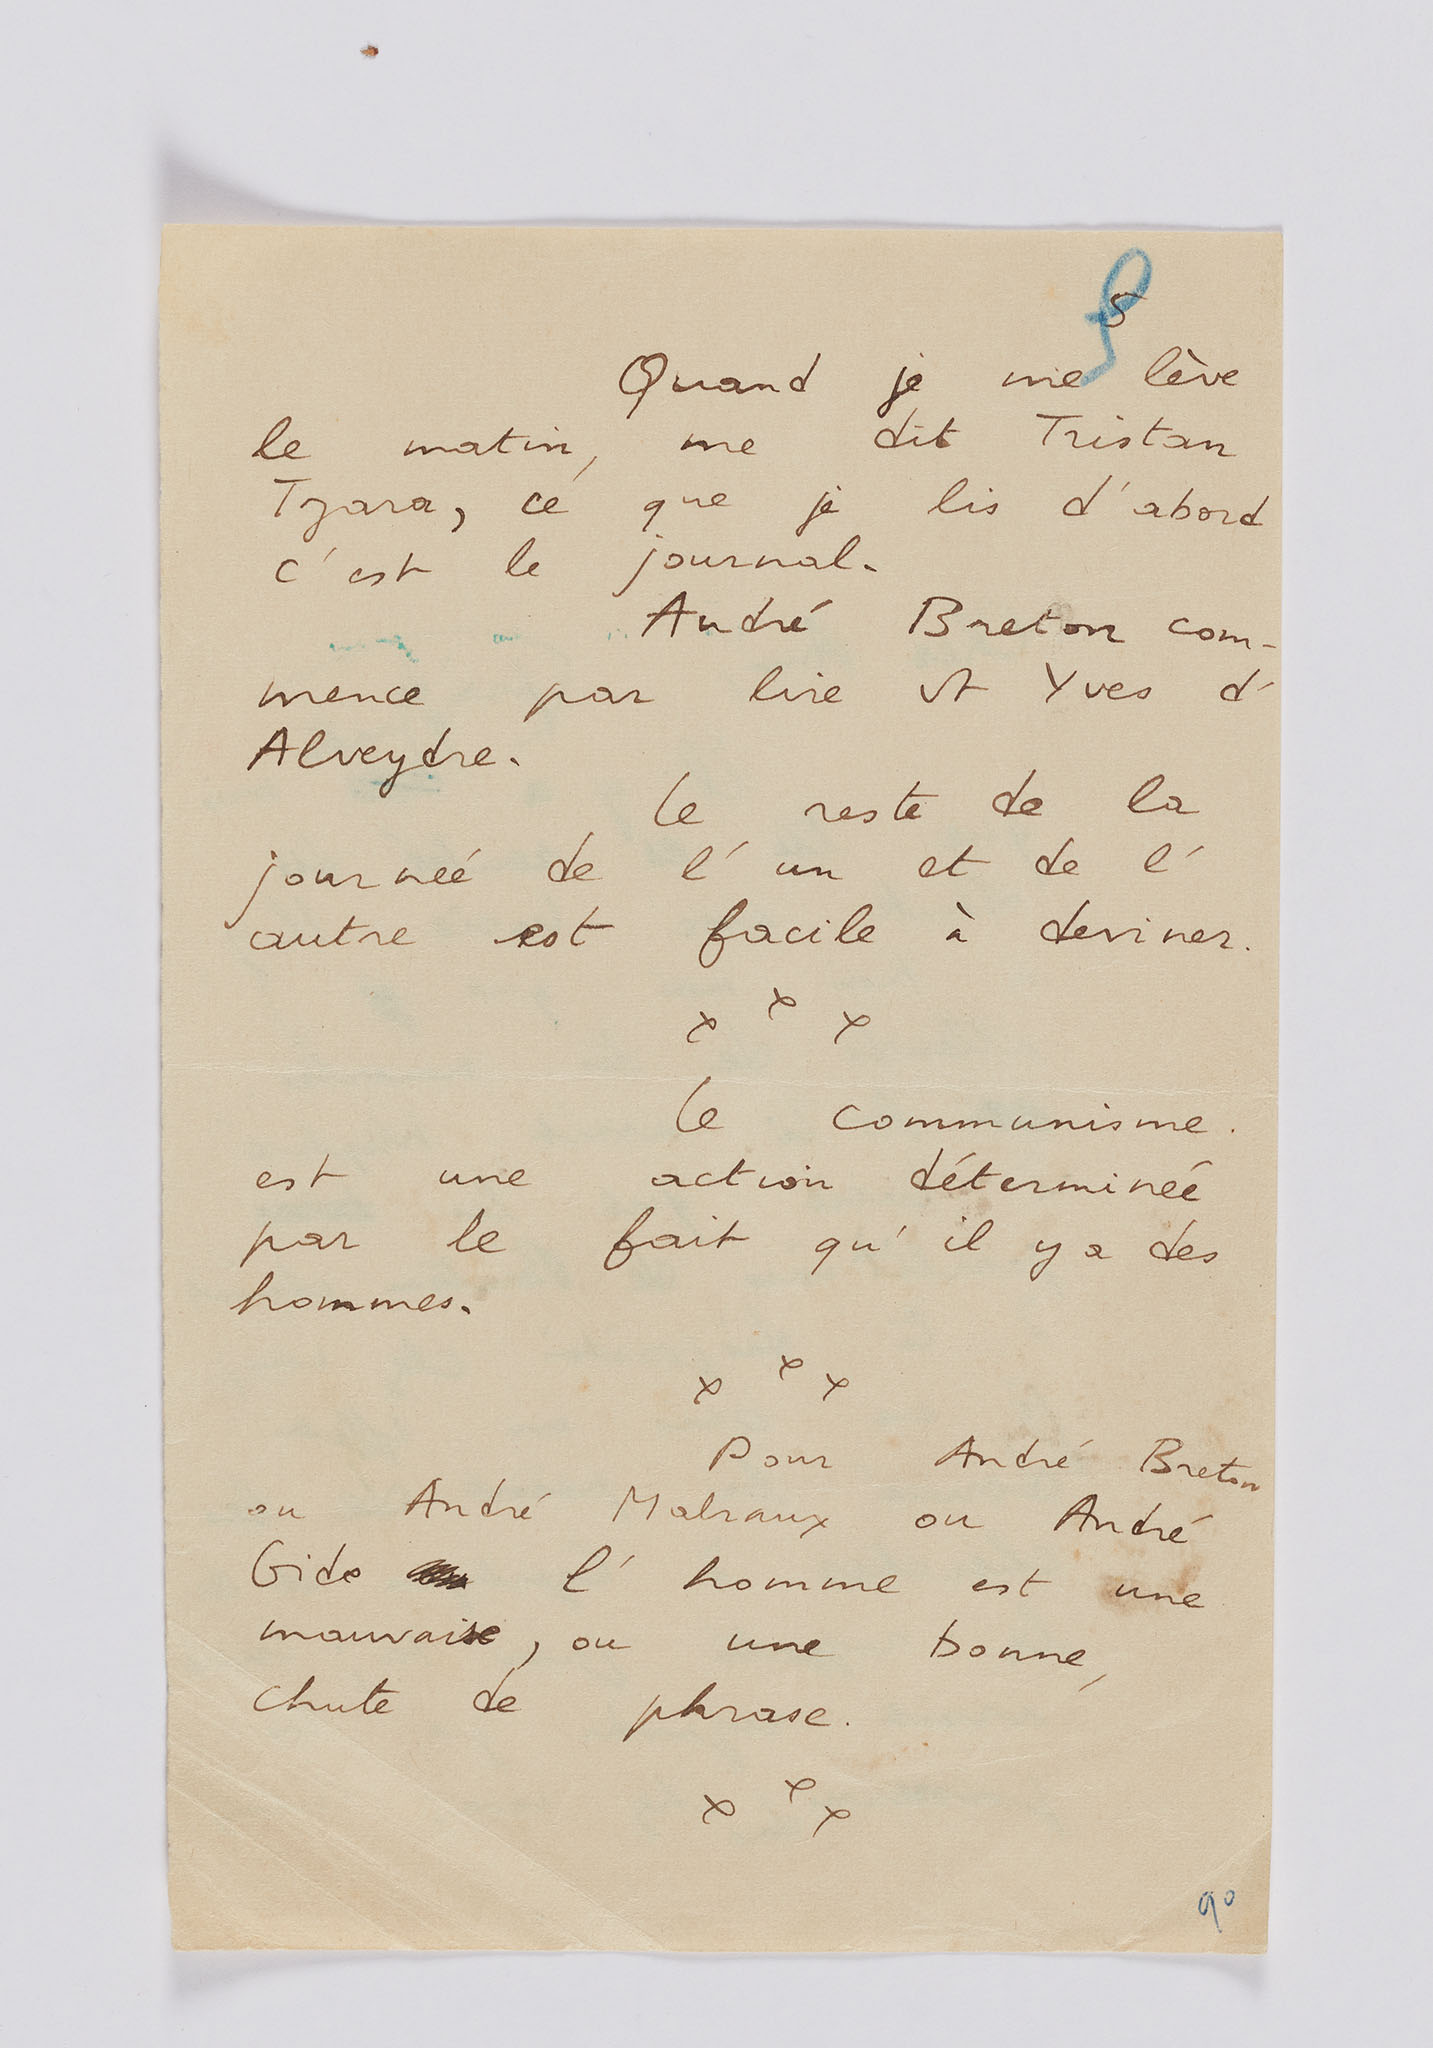 5
Quand je me lève
le matin, me dit Tristan
Tzara, ce que je lis d'abord
c'est le journal.
André Breton com-
mence par lire St Yves d'
Alveydre.
Le reste de la
journée de l'un et de l'
autre est facile à deviner.
x x x
Le communisme
est une action déterminée
par le fait qu'il y a des
hommes.
x x x
Pour André Breton
ou André Malraux ou André
Gide l'homme est une
mauvaise, ou une bonne,
chute de phrase.
x x x
90